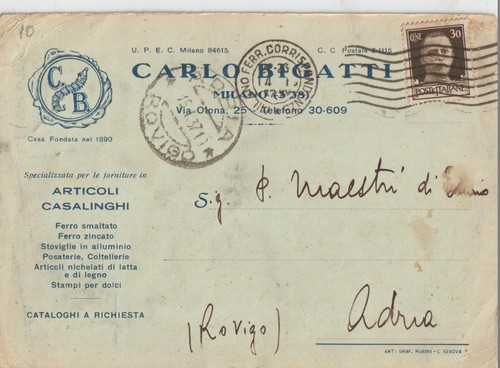 10
U. P. E. C. Milano 84615
C. C. Postale 3-1115
CARLO BIGATTI
MILANO (3-38)
Via Olona, 25 - Telefono 30-609
C B
Casa Fondata nel 1890
CENT 30
POSTE ITALIANE
FERR. CORRISPONDENZE
ADRIA
ROVIGO
Specializzata per le forniture in
ARTICOLI
CASALINGHI
Ferro smaltato
Ferro zincato
Stoviglie in alluminio
Posaterie, Coltellerie
Articoli nichelati di latta
e di legno
Stampi per dolci
CATALOGHI A RICHIESTA
Sig. P. Maestri di
(Rovigo) Adria
ARTI GRAF. RUBINI - C. GENOVA 7